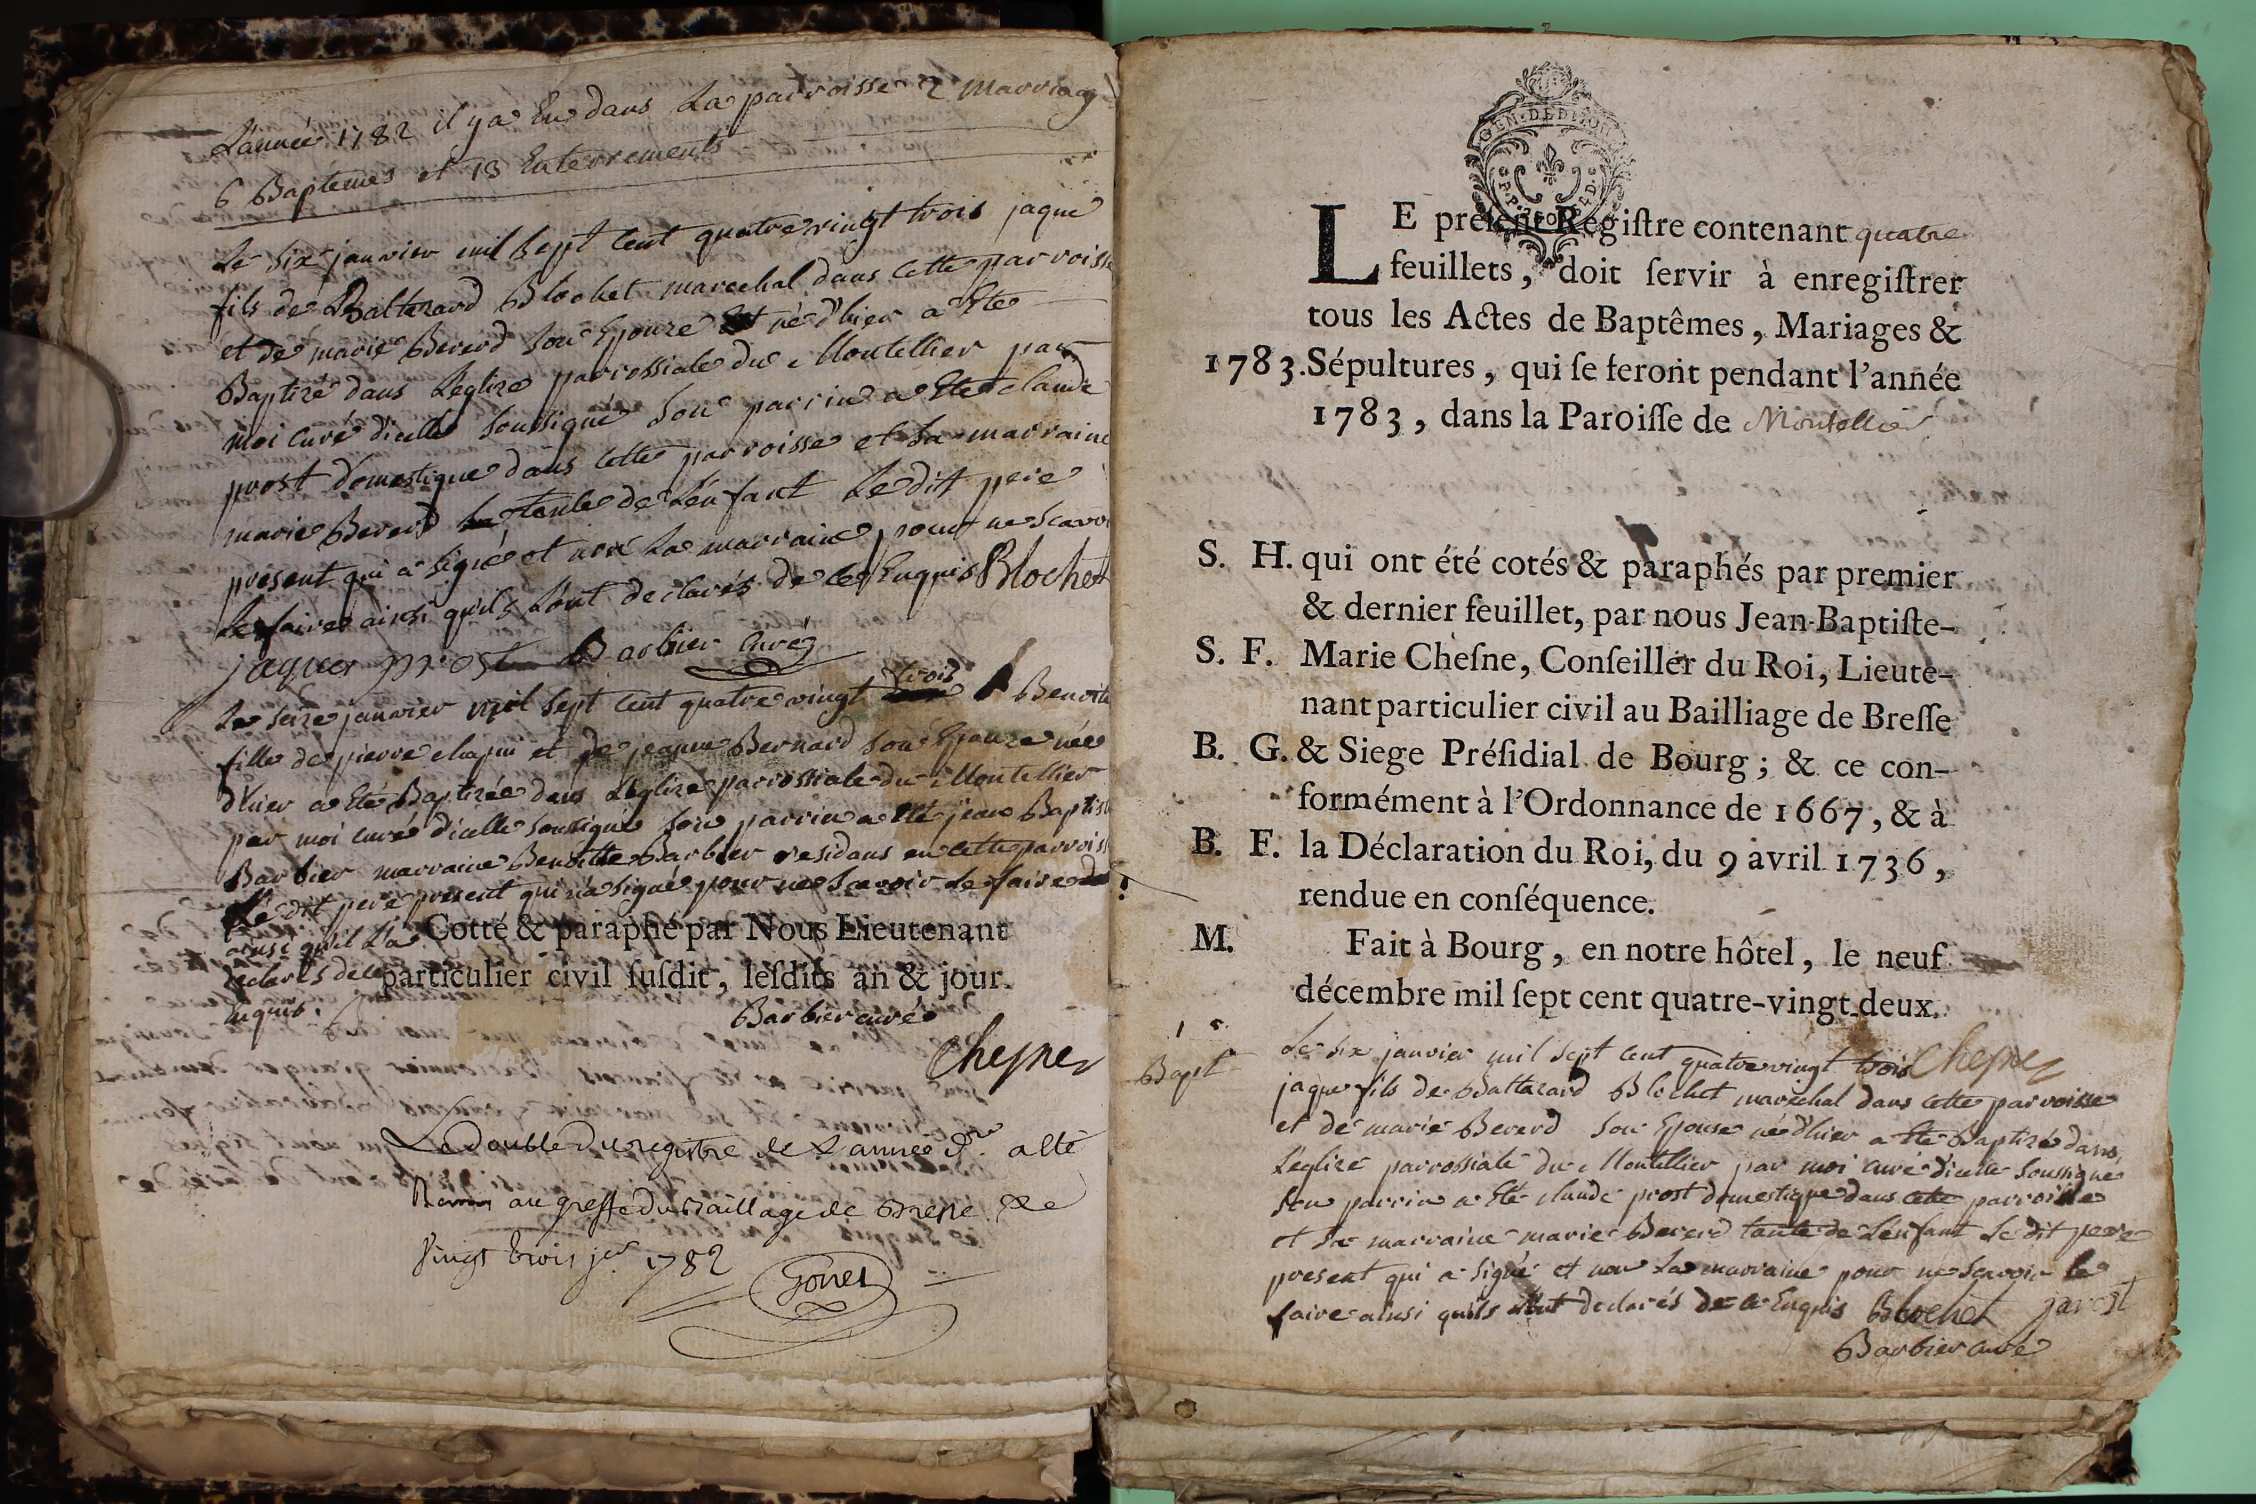 L'année 1782 il ya Eu dans La parroisse 2 marriag
6 Baptemes et 13 Enterrements
Le six janvier mil sept cent quatrevingt trois jaque
fils de Baltazard Blochet marechal dans cette parroisse
et de marie Bererd son Epouze né d'hier a Ete
Baptizé dans L'eglize parrossiale du Montellier par
moi curé d'icelle soussigné son parrin a Ete claude
prost domestique dans cette parroisse et sa marraine
marie Bererd tante de L'enfant Le dit pere
present qui a signé et non La marraine pour ne scavoi
Le faire ainsi qu'ils L'ont declarés de ce Enquis Blochet
jaques prost Barbier curé
Le seize janvier mil sept cent quatre vingt trois Benoite
fille de pierre chapui et de jeanne Bernard son Epouze née
d'hier a Eté Baptizée dans L'eglize parrossiale du Montellier
par moi curé d'icelle soussigné son parrin a Eté jean Baptist
Barbier marraine Benoitte Barbier residans en cette parroiss
Le dit pere present qui n'a signé pour ne scavoir Le faire
ainsi qu'il L'a
declarés de ce
Enquis.
Cotté & paraphé par Nous Lieutenant
particulier civil ſuſdit, leſdits an & jour.
Barbier curé
Chesne
Le double du registre de L'année d.re a Eté
Remis au greffe du Bailliage de Bresse Le
Vingt trois j.er 1782
GEN. DE DIJON
LE préſent Regiſtre contenant quatre
feuillets, doit ſervir à enregiſtrer
tous les Actes de Baptêmes, Mariages &
1783. Sépultures, qui ſe feront pendant l'année
1783, dans la Paroiſſe de Montellier
S. H. qui ont été cotés & paraphés par premier
& dernier feuillet, par nous Jean-Baptiſte-
S. F. Marie Cheſne, Conſeiller du Roi, Lieute-
nant particulier civil au Bailliage de Breſſe
B. G. & Siege Préſidial de Bourg; & ce con-
formément à l'Ordonnance de 1667, & à
B. F. la Déclaration du Roi, du 9 avril 1736,
rendue en conſéquence.
M. Fait à Bourg, en notre hôtel, le neuf
décembre mil ſept cent quatre-vingt-deux.
Chesne
1
Bapt
Le six janvier mil sept cent quatrevingt trois
jaque fils de Baltazard Blochet marechal dans cette parroisse
et de marie Bererd son Epouse né d'hier a Ete Baptizé dans
L'eglize parrossiale du Montellier par moi curé d'icelle soussigné
son parrin a Eté claude prost domestique dans cette parroisse
et sa marraine marie Bererd tante de L'enfant Le dit pere
present qui a signé et non La marraine pour ne scavoir le
faire ainsi quils L'ont declarés de ce Enquis Blochet
Barbier curé